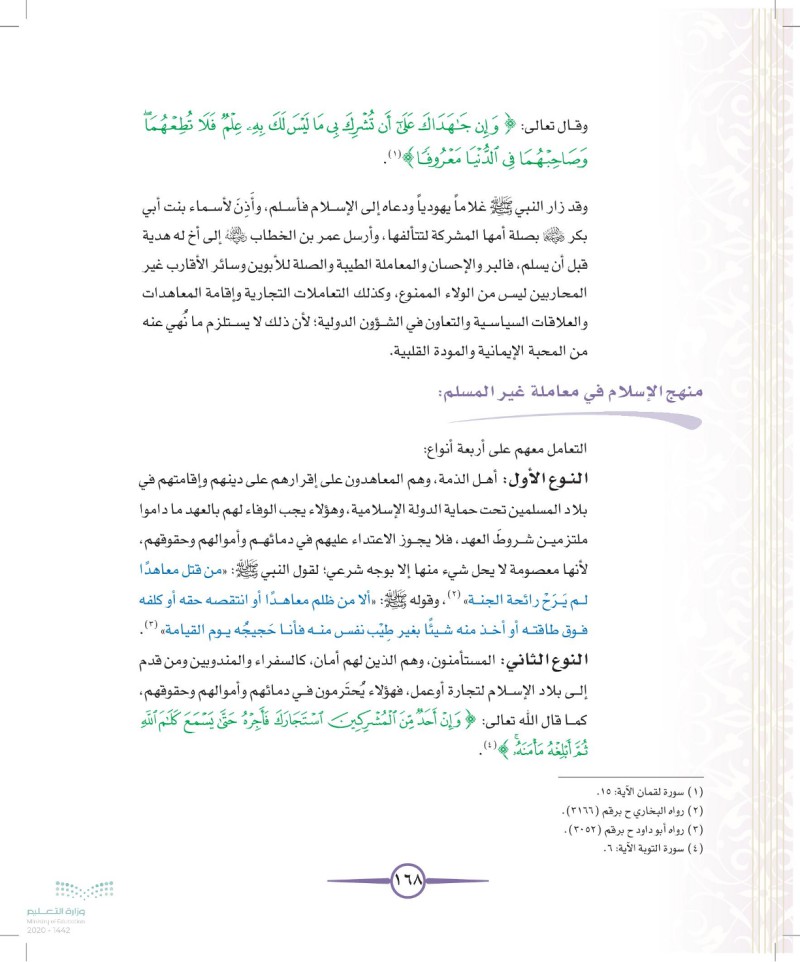 وقال تعالى: ﴿ وَإِن جَٰهَدَاكَ عَلَىٰٓ أَن تُشْرِكَ بِى مَا لَيْسَ لَكَ بِهِۦ عِلْمٌ فَلَا تُطِعْهُمَاۖ
وَصَاحِبْهُمَا فِى ٱلدُّنْيَا مَعْرُوفًا ﴾(١).
وقد زار النبي ﷺ غلاماً يهودياً ودعاه إلى الإسلام فأسلم، وأَذِنَ لأسماء بنت أبي
بكر رضي الله عنها بصلة أمها المشركة لتتألفها، وأرسل عمر بن الخطاب رضي الله عنه إلى أخ له هدية
قبل أن يسلم، فالبر والإحسان والمعاملة الطيبة والصلة للأبوين وسائر الأقارب غير
المحاربين ليس من الولاء الممنوع، وكذلك التعاملات التجارية وإقامة المعاهدات
والعلاقات السياسية والتعاون في الشؤون الدولية؛ لأن ذلك لا يستلزم ما نُهي عنه
من المحبة الإيمانية والمودة القلبية.
منهج الإسلام في معاملة غير المسلم:
التعامل معهم على أربعة أنواع:
النوع الأول: أهل الذمة، وهم المعاهدون على إقرارهم على دينهم وإقامتهم في
بلاد المسلمين تحت حماية الدولة الإسلامية، وهؤلاء يجب الوفاء لهم بالعهد ما داموا
ملتزمين شروطَ العهد، فلا يجوز الاعتداء عليهم في دمائهم وأموالهم وحقوقهم،
لأنها معصومة لا يحل شيء منها إلا بوجه شرعي؛ لقول النبي ﷺ: «من قتل معاهدًا
لم يَرَحْ رائحة الجنة»(٢)، وقوله ﷺ: «ألا من ظلم معاهدًا أو انتقصه حقه أو كلفه
فوق طاقته أو أخذ منه شيئًا بغير طِيْب نفس منه فأنا حَجيجُه يوم القيامة»(٣).
النوع الثاني: المستأمنون، وهم الذين لهم أمان، كالسفراء والمندوبين ومن قدم
إلى بلاد الإسلام لتجارة أوعمل، فهؤلاء يُحتَرمون في دمائهم وأموالهم وحقوقهم،
كما قال الله تعالى: ﴿ وَإِنْ أَحَدٌ مِّنَ ٱلْمُشْرِكِينَ ٱسْتَجَارَكَ فَأَجِرْهُ حَتَّىٰ يَسْمَعَ كَلَٰمَ ٱللَّهِ
ثُمَّ أَبْلِغْهُ مَأْمَنَهُۥۚ ﴾(٤).
(١) سورة لقمان الآية: ١٥.
(٢) رواه البخاري ح برقم (٣١٦٦).
(٣) رواه أبو داود ح برقم (٣٠٥٢).
(٤) سورة التوبة الآية: ٦.
١٦٨
وزارة التعليم
Ministry of Education
2020 - 1442